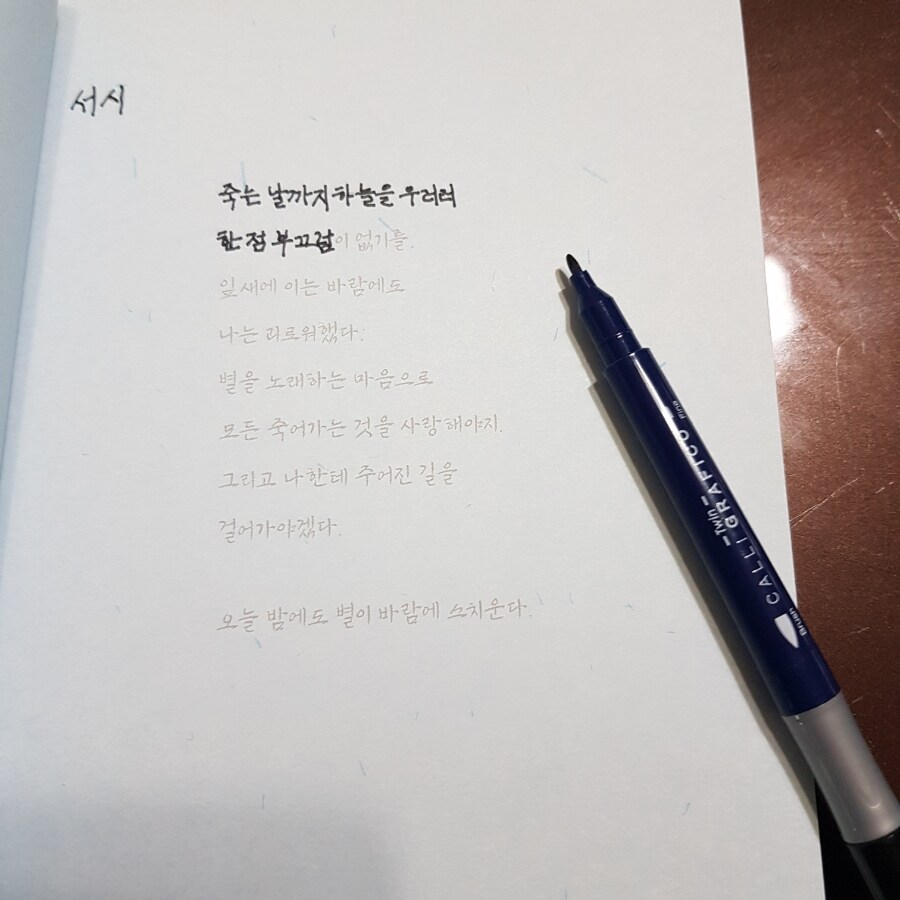 서시
죽는 날까지 하늘을 우러러
한 점 부끄럼이 없기를.
잎새에 이는 바람에도
나는 괴로워했다.
별을 노래하는 마음으로
모든 죽어가는 것을 사랑해야지.
그리고 나한테 주어진 길을
걸어가야겠다.
오늘 밤에도 별이 바람에 스치운다.
Fine
Twin
CALLIGRAFICO
Brush